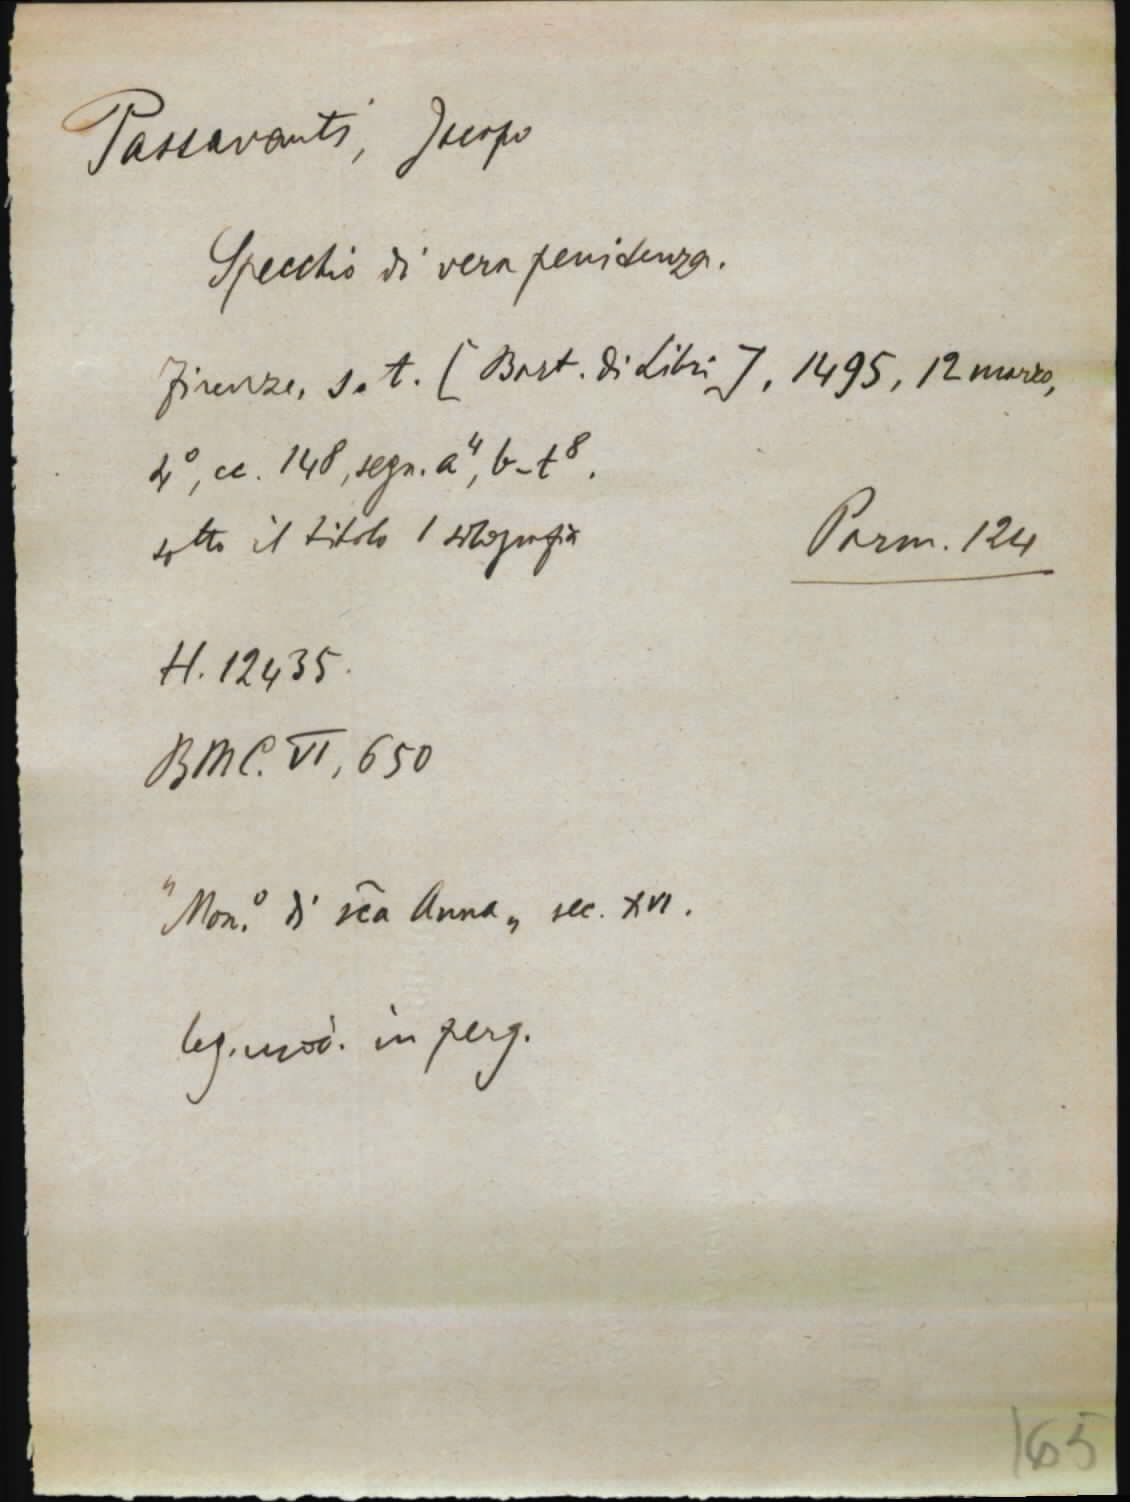 Passavanti, Jacopo
Specchio di vera penidenza.
Firenze, s. t. [Bart. di Libri], 1495, 12 marzo,
4°, cc. 148, segn. a⁴, b-t⁸.
sotto il titolo 1 silografia
Parm. 124
H. 12435.
BMC. VI, 650
"Mon.° di sc̄a Anna„ sec. XVI.
leg. mod. in perg.
165